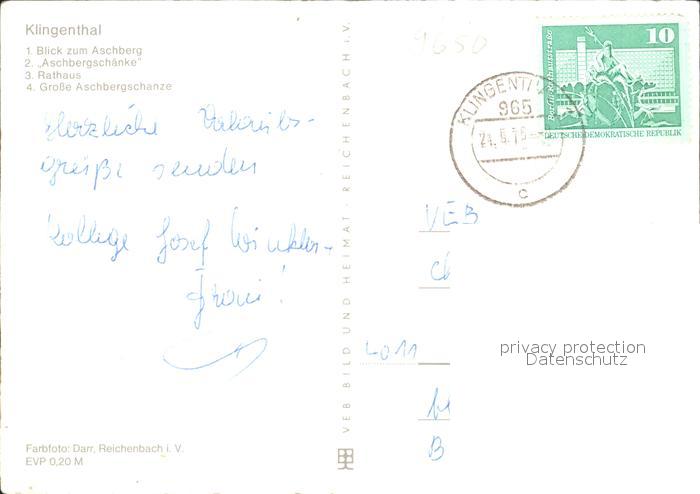 Klingenthal
1. Blick zum Aschberg
2. „Aschbergschänke"
3. Rathaus
4. Große Aschbergschanze
9650
Herzliche Urlaubs-
grüße senden
Kollege Josef Winkler
Frau!
Farbfoto: Darr, Reichenbach i. V.
EVP 0,20 M
VEB BILD UND HEIMAT · REICHENBACH i.V.
KLINGENTHAL
965
c
10
Berlin · Rathausstraße
DEUTSCHE DEMOKRATISCHE REPUBLIK
VEB
Ch
4011
B
privacy protection
Datenschutz